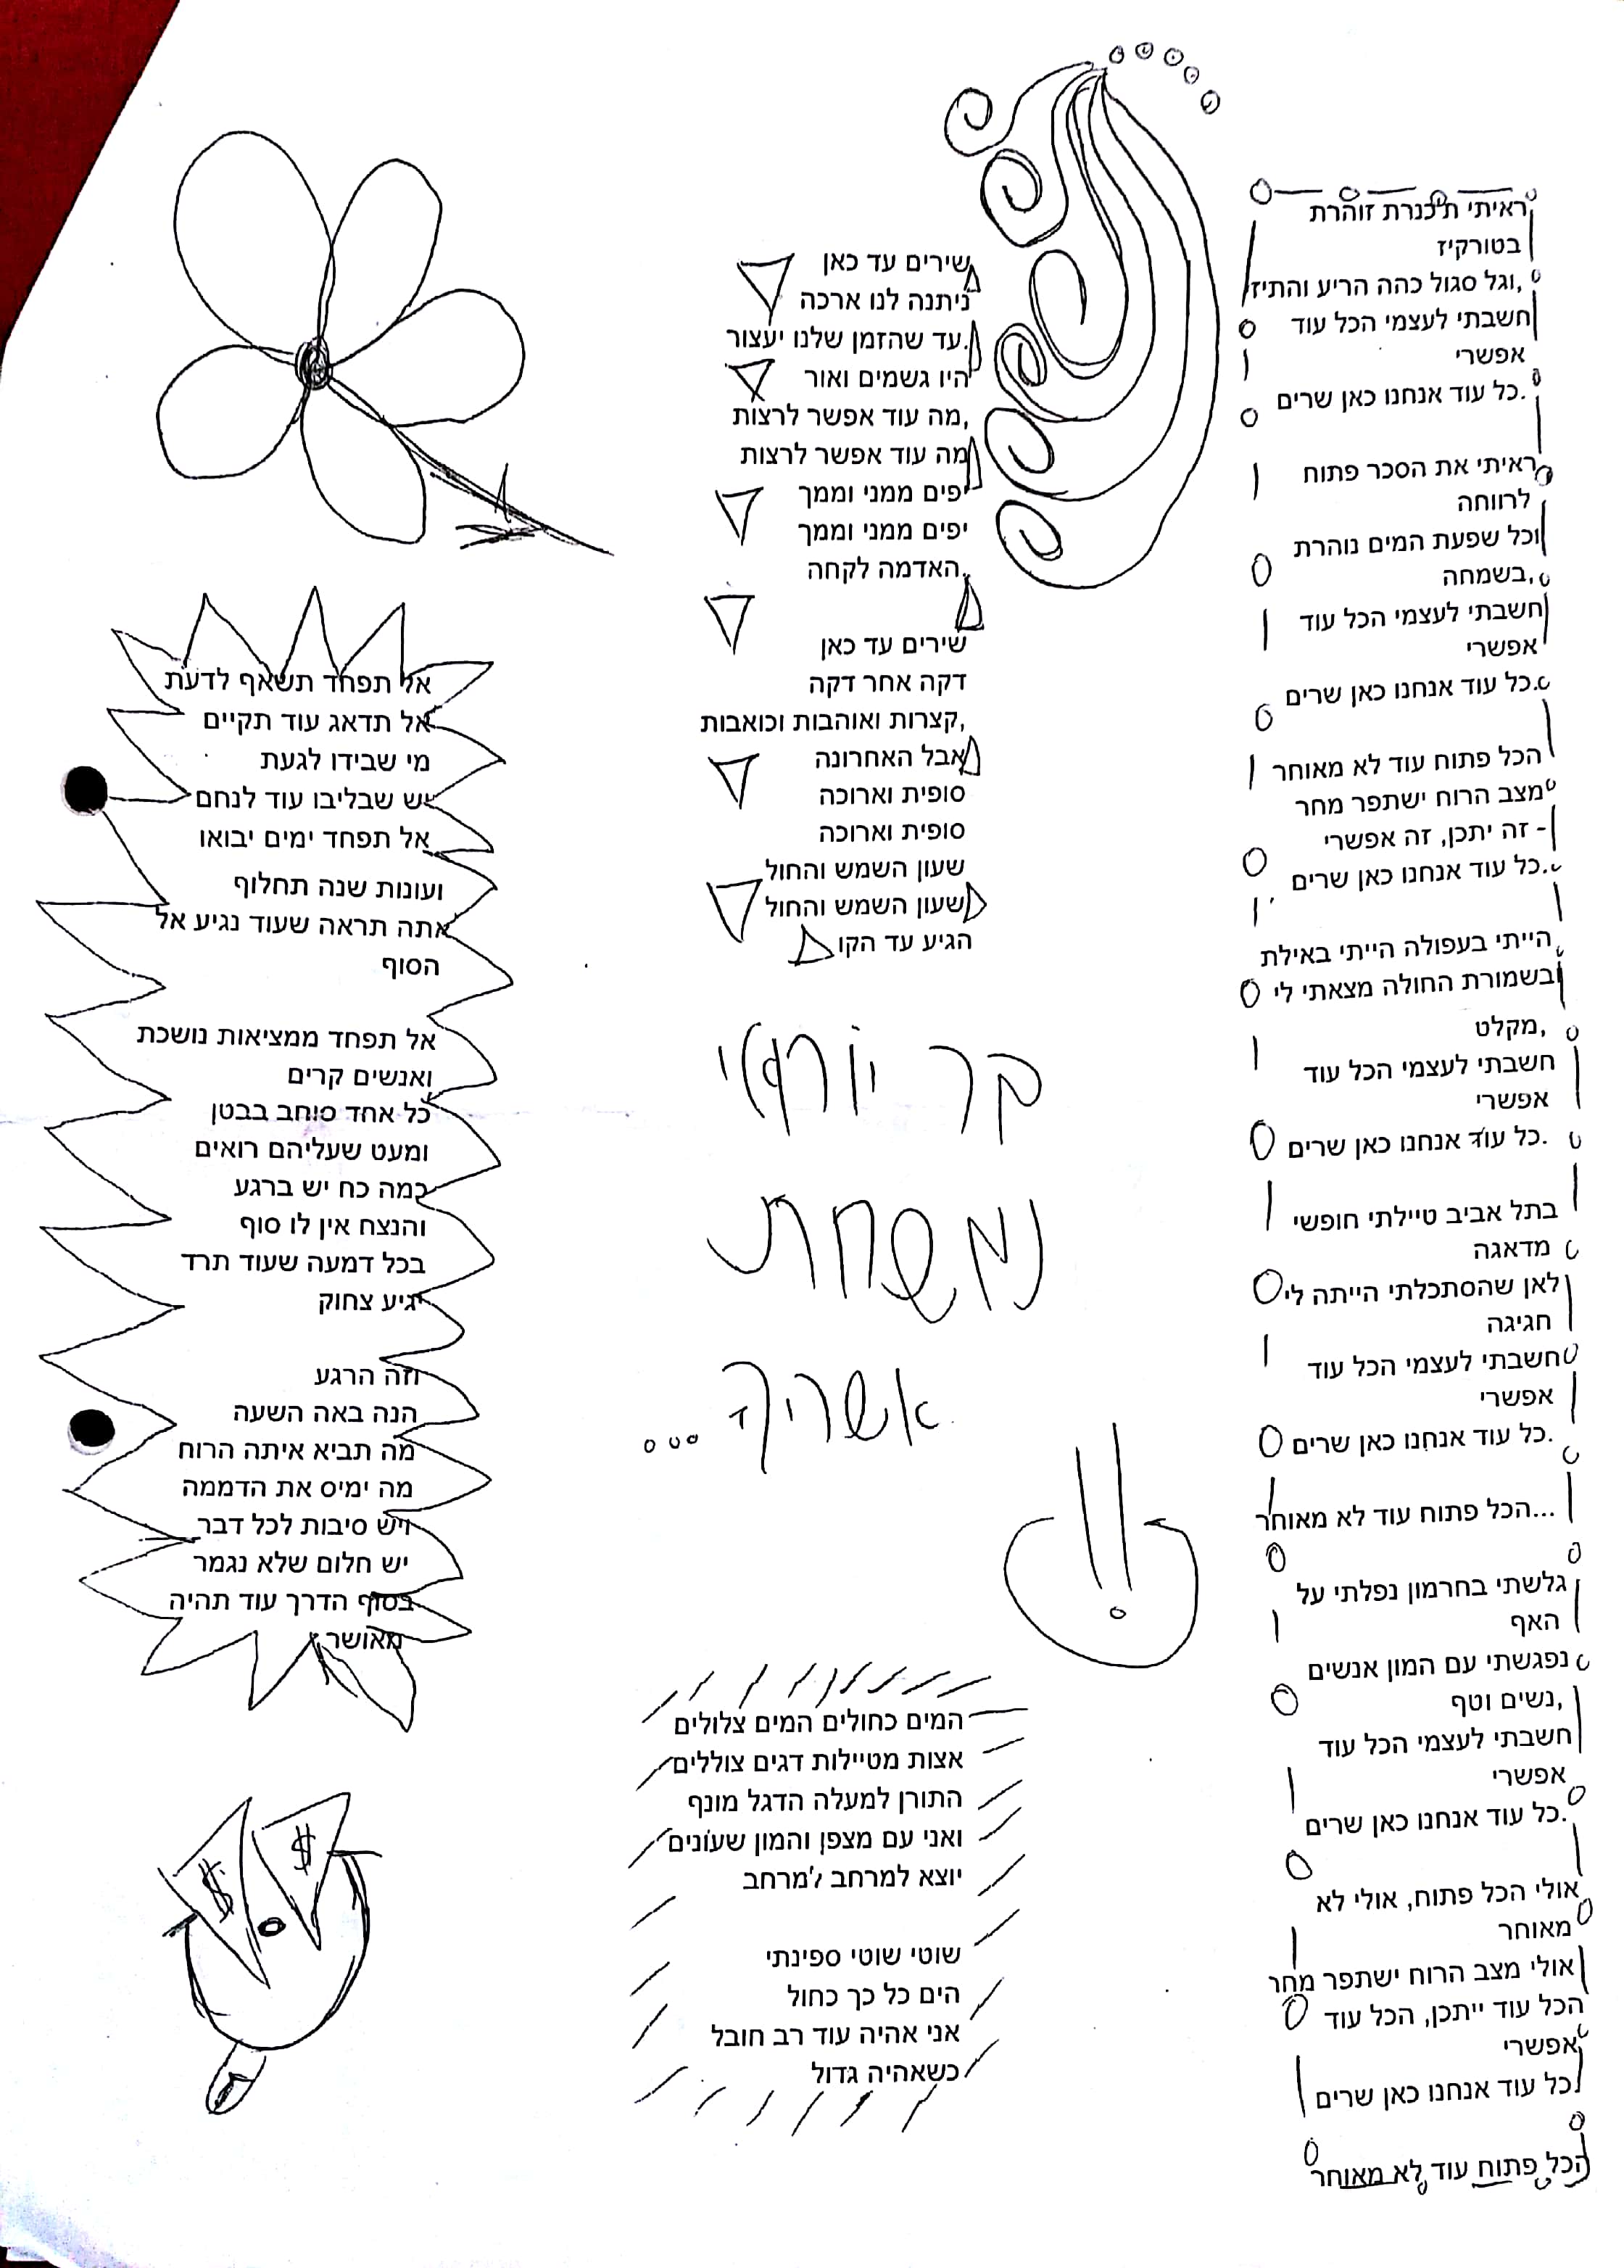 ראיתי ת'כנרת זוהרת
בטורקיז
,וגל סגול כהה הריע והתיז
חשבתי לעצמי הכל עוד
אפשרי
.כל עוד אנחנו כאן שרים
ראיתי את הסכר פתוח
לרווחה
וכל שפעת המים נוהרת
,בשמחה
חשבתי לעצמי הכל עוד
אפשרי
.כל עוד אנחנו כאן שרים
הכל פתוח עוד לא מאוחר
מצב הרוח ישתפר מחר
- זה יתכן, זה אפשרי
.כל עוד אנחנו כאן שרים
הייתי בעפולה הייתי באילת
ובשמורת החולה מצאתי לי
,מקלט
חשבתי לעצמי הכל עוד
אפשרי
.כל עוד אנחנו כאן שרים
בתל אביב טיילתי חופשי
מדאגה
לאן שהסתכלתי הייתה לי
חגיגה
חשבתי לעצמי הכל עוד
אפשרי
.כל עוד אנחנו כאן שרים
...הכל פתוח עוד לא מאוחר
גלשתי בחרמון נפלתי על
האף
נפגשתי עם המון אנשים
,נשים וטף
חשבתי לעצמי הכל עוד
אפשרי
.כל עוד אנחנו כאן שרים
אולי הכל פתוח, אולי לא
מאוחר
אולי מצב הרוח ישתפר מחר
הכל עוד ייתכן, הכל עוד
אפשרי
כל עוד אנחנו כאן שרים
הכל פתוח עוד לא מאוחר
שירים עד כאן
ניתנה לנו ארכה
.עד שהזמן שלנו יעצור
היו גשמים ואור
,מה עוד אפשר לרצות
מה עוד אפשר לרצות
יפים ממני וממך
יפים ממני וממך
.האדמה לקחה
שירים עד כאן
דקה אחר דקה
,קצרות ואוהבות וכואבות
אבל האחרונה
סופית וארוכה
סופית וארוכה
שעון השמש והחול
שעון השמש והחול
הגיע עד הקו
נמשחת
המים כחולים המים צלולים
אצות מטיילות דגים צוללים
התורן למעלה הדגל מונף
ואני עם מצפן והמון שעונים
יוצא למרחב למרחב
שוטי שוטי ספינתי
הים כל כך כחול
אני אהיה עוד רב חובל
כשאהיה גדול
אל תפחד תשאף לדעת
אל תדאג עוד תקיים
מי שבידו לגעת
יש שבליבו עוד לנחם
אל תפחד ימים יבואו
ועונות שנה תחלוף
אתה תראה שעוד נגיע אל
הסוף
אל תפחד ממציאות נושכת
ואנשים קרים
כל אחד סוחב בבטן
ומעט שעליהם רואים
כמה כח יש ברגע
והנצח אין לו סוף
בכל דמעה שעוד תרד
יגיע צחוק
וזה הרגע
הנה באה השעה
מה תביא איתה הרוח
מה ימיס את הדממה
ויש סיבות לכל דבר
יש חלום שלא נגמר
בסוף הדרך עוד תהיה
מאושר
$ $